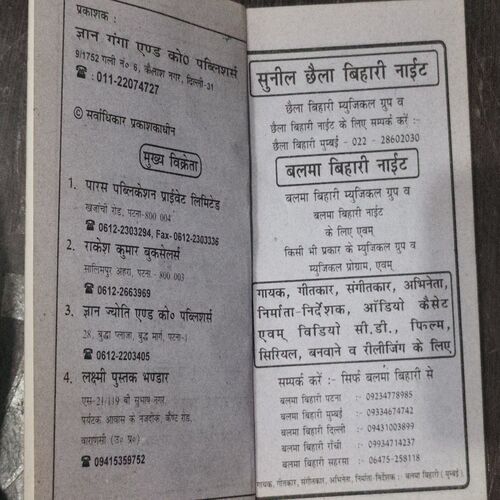 प्रकाशक :
ज्ञान गंगा एण्ड को० पब्लिशर्स
9/1752 गली नं० 6, कैलाश नगर, दिल्ली-31
☎ : 011-22074727
© सर्वाधिकार प्रकाशकाधीन
मुख्य विक्रेता
1. पारस पब्लिकेशन प्राईवेट लिमिटेड
खजांची रोड, पटना-800 004
☎ 0612-2303294, Fax- 0612-2303336
2. राकेश कुमार बुकसेलर्स
सालिमपुर अहरा, पटना - 800 003
☎ 0612-2663969
3. ज्ञान ज्योति एण्ड को० पब्लिशर्स
28, बुद्धा प्लाजा, बुद्ध मार्ग, पटना-1
☎ 0612-2203405
4. लक्ष्मी पुस्तक भण्डार
एस-21/119 बी सुभाष नगर,
पर्यटक आवास के नजदीक, कैण्ट रोड,
वाराणसी (उ० प्र०)
☎ 09415359752
सुनील छैला बिहारी नाईट
छैला बिहारी म्युजिकल ग्रुप व
छैला बिहारी नाईट के लिए सम्पर्क करें :-
छैला बिहारी मुम्बई - 022 - 28602030
बलमा बिहारी नाईट
बलमा बिहारी म्युजिकल ग्रुप व
बलमा बिहारी नाईट
के लिए एवम्
किसी भी प्रकार के म्युजिकल ग्रुप व
म्युजिकल प्रोग्राम, एवम्
गायक, गीतकार, संगीतकार, अभिनेता,
निर्माता-निर्देशक, ऑडियो कैसेट
एवम् विडियो सी.डी., फिल्म,
सिरियल, बनवाने व रीलीजिंग के लिए
सम्पर्क करें :- सिर्फ बलमा बिहारी से
बलमा बिहारी पटना : 09234778985
बलमा बिहारी मुम्बई : 09334674742
बलमा बिहारी दिल्ली : 09431003899
बलमा बिहारी राँची : 09934714237
बलमा बिहारी सहरसा : 06475-258118
गायक, गीतकार, संगीतकार, अभिनेता, निर्माता-निर्देशक : बलमा बिहारी (मुम्बई)